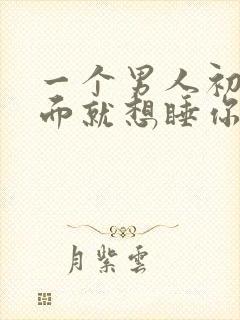 一个男人初
而就想睡你
月紫雲